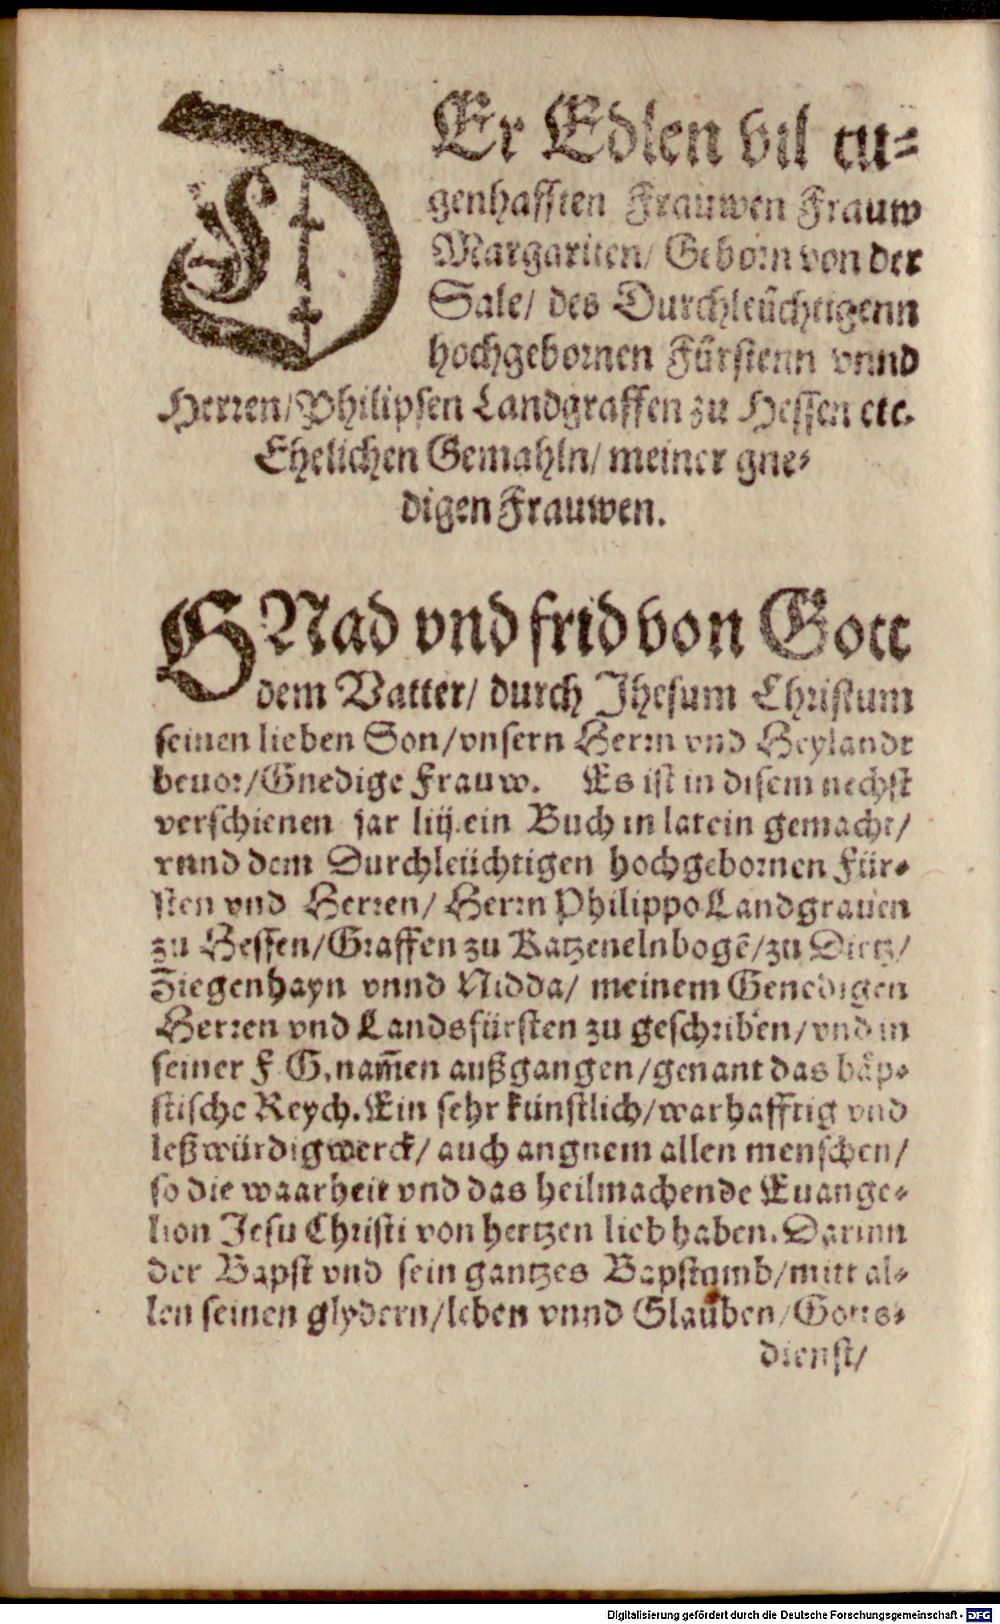 DEr Edlen vil tu-
genhafften Frauwen Frauw
Margariten/ Geborn von der
Sale/ des Durchleüchtigenn
hochgebornen Fürstenn vnnd
Herren/Philipsen Landgraffen zu Hessen etc.
Ehelichen Gemahln/ meiner gne-
digen Frauwen.
GNad vnd frid von Gott
dem Vatter/ durch Jhesum Christum
seinen lieben Son/vnsern Herrn vnd Heylandt
beuor/Gnedige Frauw. Es ist in disem nechst
verschienen jar liij.ein Buch in latein gemacht/
vnnd dem Durchleüchtigen hochgebornen Für-
sten vnd Herren/ Herrn Philippo Landgrauen
zu Hessen/Graffen zu Katzenelnbogē/zu Dietz/
Ziegenhayn vnnd Nidda/ meinem Genedigen
Herren vnd Landsfürsten zu geschriben/vnd in
seiner F G.nam̄en außgangen/genant das bäp-
stische Reych. Ein sehr künstlich/warhafftig vnd
leßwürdig werck/ auch angnem allen menschen/
so die waarheit vnd das heilmachende Euange-
lion Jesu Christi von hertzen lieb haben. Darinn
der Bapst vnd sein gantzes Bapstumb/mitt al-
len seinen glydern/leben vnnd Glauben/Gotts-
dienst/
Digitalisierung gefördert durch die Deutsche Forschungsgemeinschaft - DFG